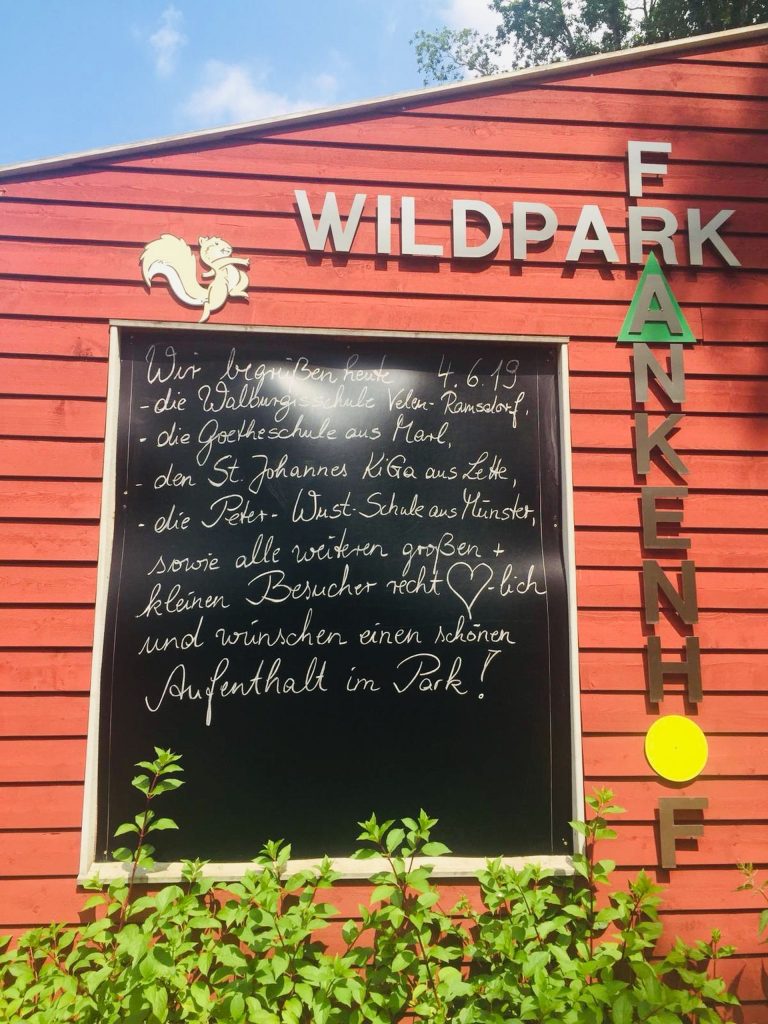 WILDPARK
FRANKENHOF
Wir begrüßen heute 4.6.19
- die Walburgisschule Velen-Ramsdorf,
- die Goetheschule aus Marl,
- den St. Johannes KiGa aus Lette,
- die Peter-Wust-Schule aus Münster,
sowie alle weiteren großen +
kleinen Besucher recht ♡-lich
und wünschen einen schönen
Aufenthalt im Park!